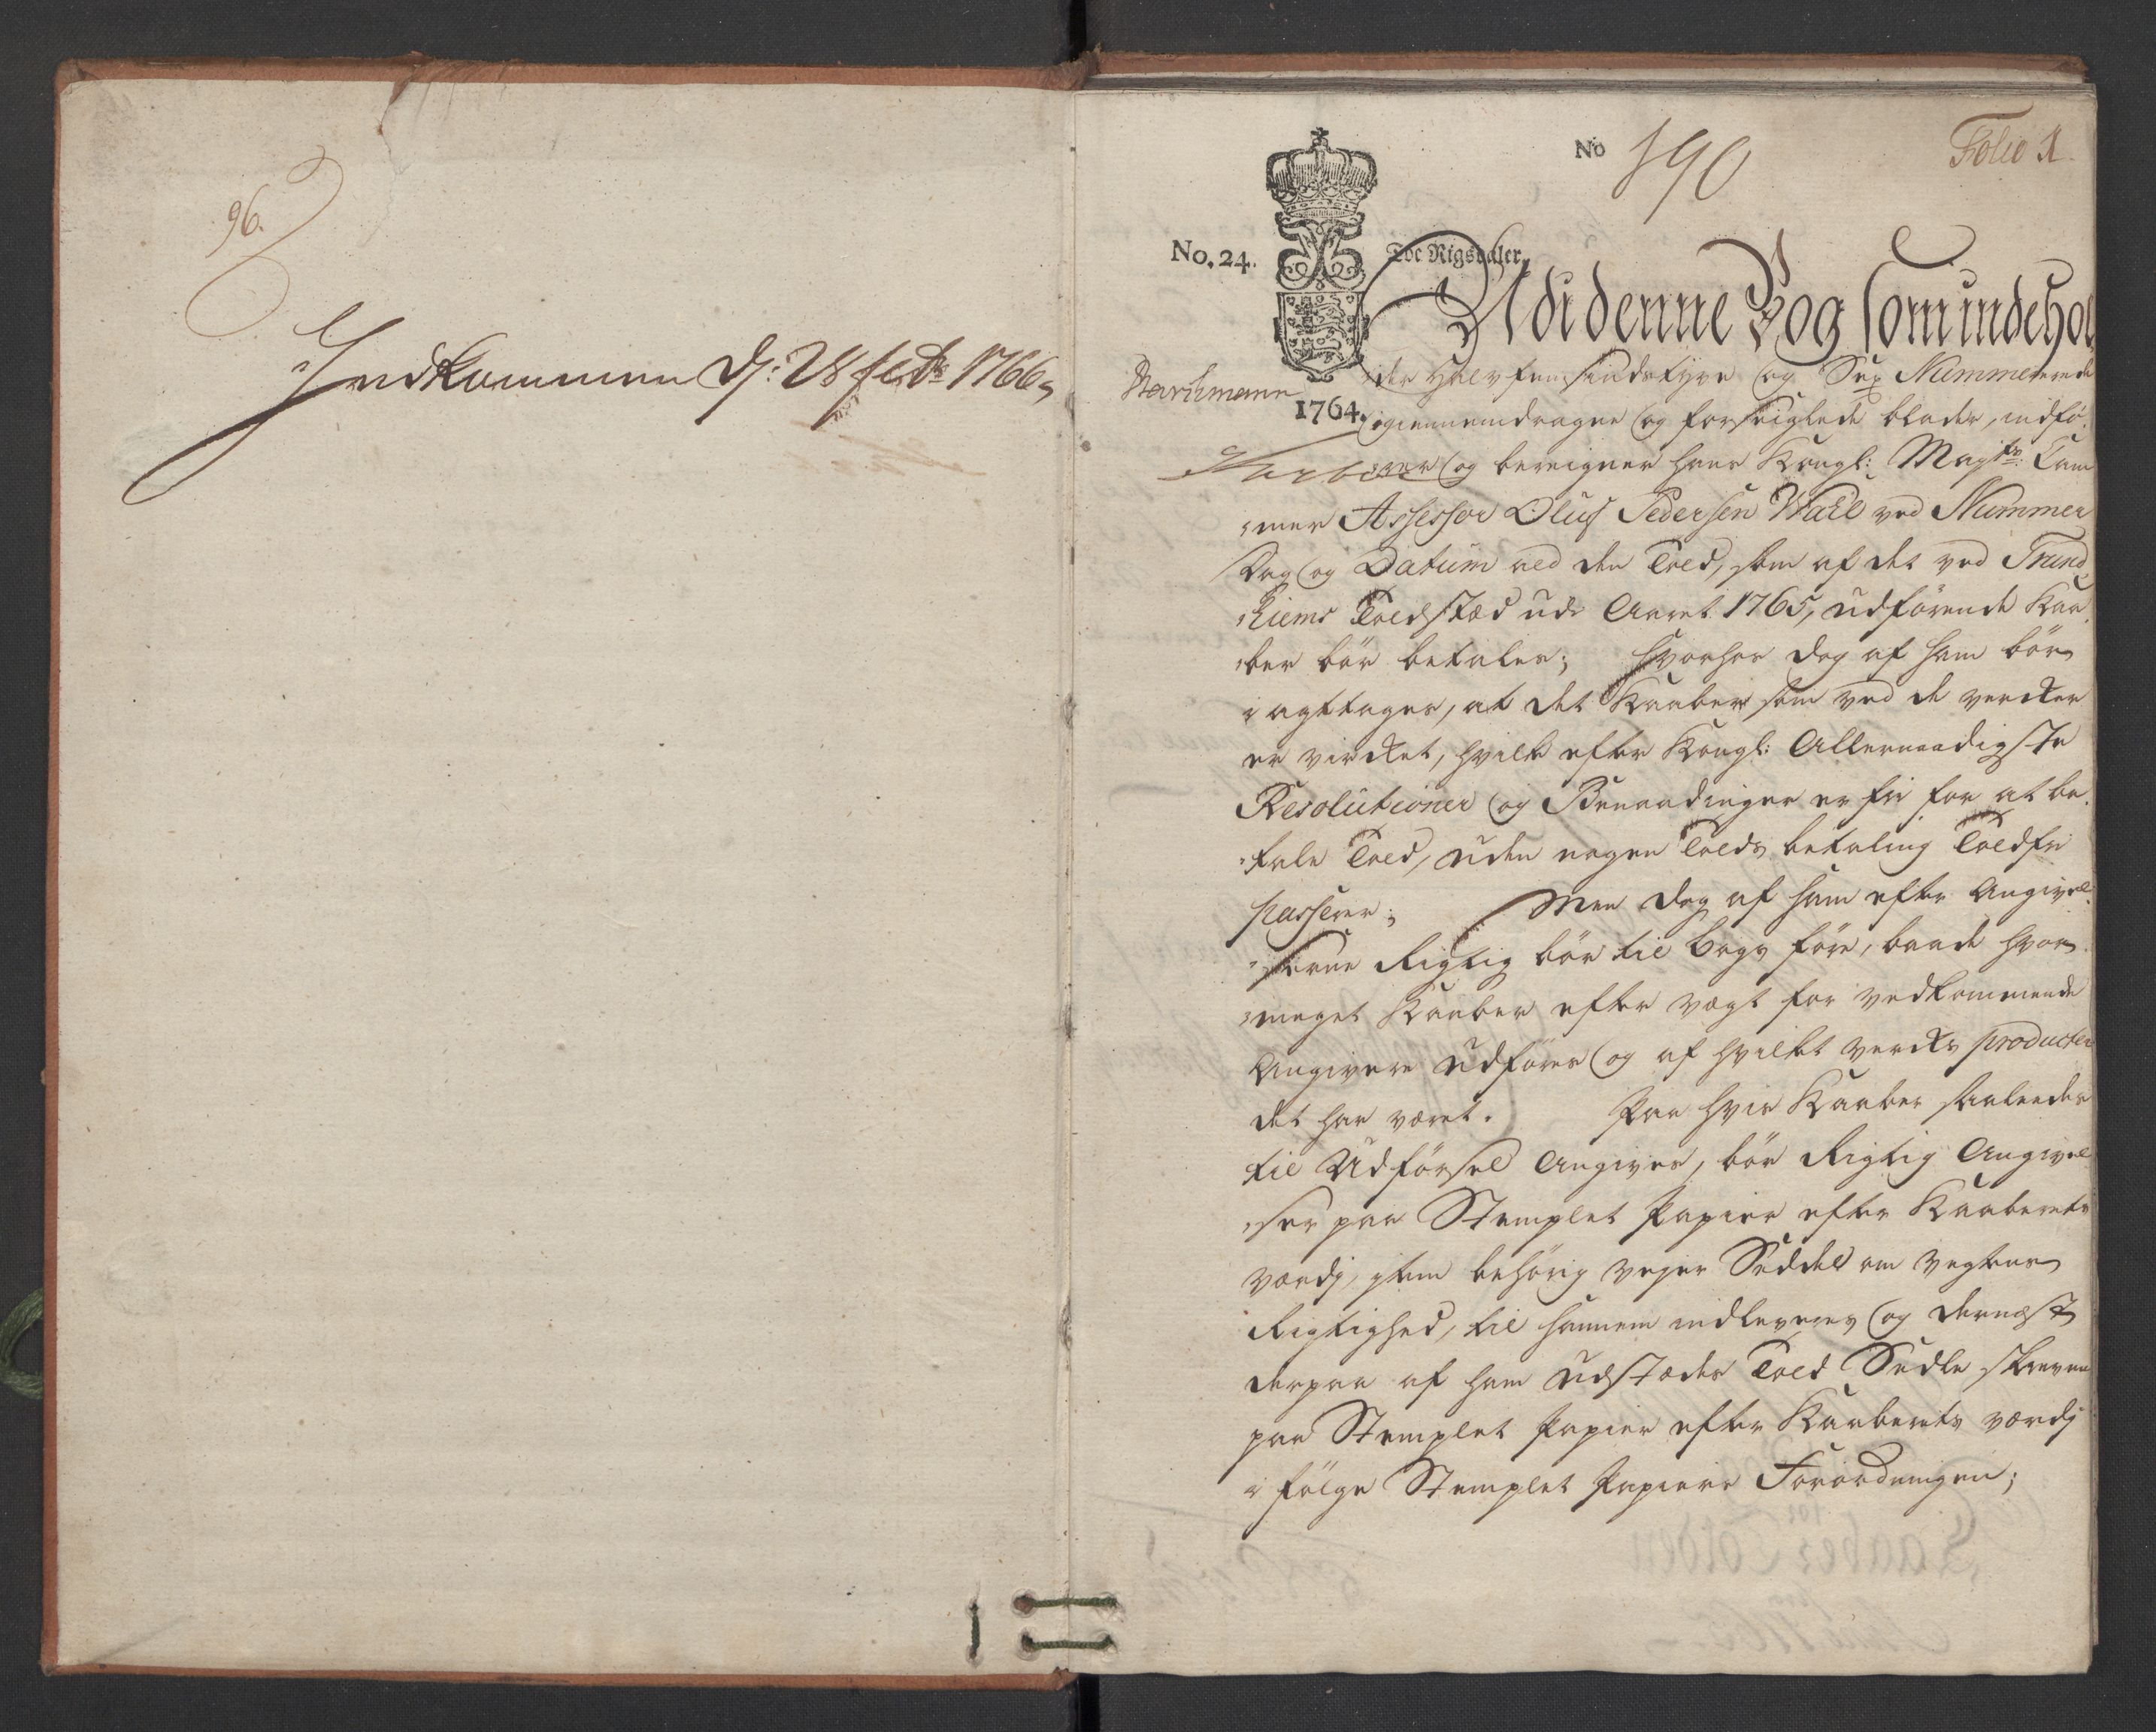 96.
Indkommen d: 28 febr 1766,
No 190
Folio 1.
No. 24.
Toe Rigsdaler.
Udi denne Bog som indehol
der Halvfemsindstyve og Sex Nummererede
1764.
igiennemdragne og forseiglede blader, indfö,
rer og bereigner hans Kongl: Mayts: Cam
mer Assessor Oluf Pedersen Wall ved Nummer
Dag og Datum ald den Told, som af det ved Trund,
hiems Toldsted udi Aaret 1765, udförende Kaa,
ber bör betales; hvorhos dog af ham bör
i agttages, at det Kaaber som ved de vercker
er vircket, hvilke efter Kongl: Allernaadigste
Resolutioner og Benaadinger er fri for at be,
tale Told, uden nogen Tolds betaling Toldfri
passerer; Men dog af ham efter Angivel,
serne Rigtig bör til bogs före, baade hvor
meget Kaaber efter vægt for vedkommende
Angivere udföres og af hvilket vercks producter
det har været. Paa hvis Kaaber saaledes
til Udförsel Angives, bör Rigtig Angivel
ser paa Stemplet Papier efter Kaaberets
værdj, item behörig vejer Seddel om vegtens
Rigtighed, til hannem indleveres og dernæst
derpaa af ham udstædes Told Sedle skreven
paa Stemplet Papier efter Kaaberets værdj
i fölge Stemplet Papiers Forordningen;